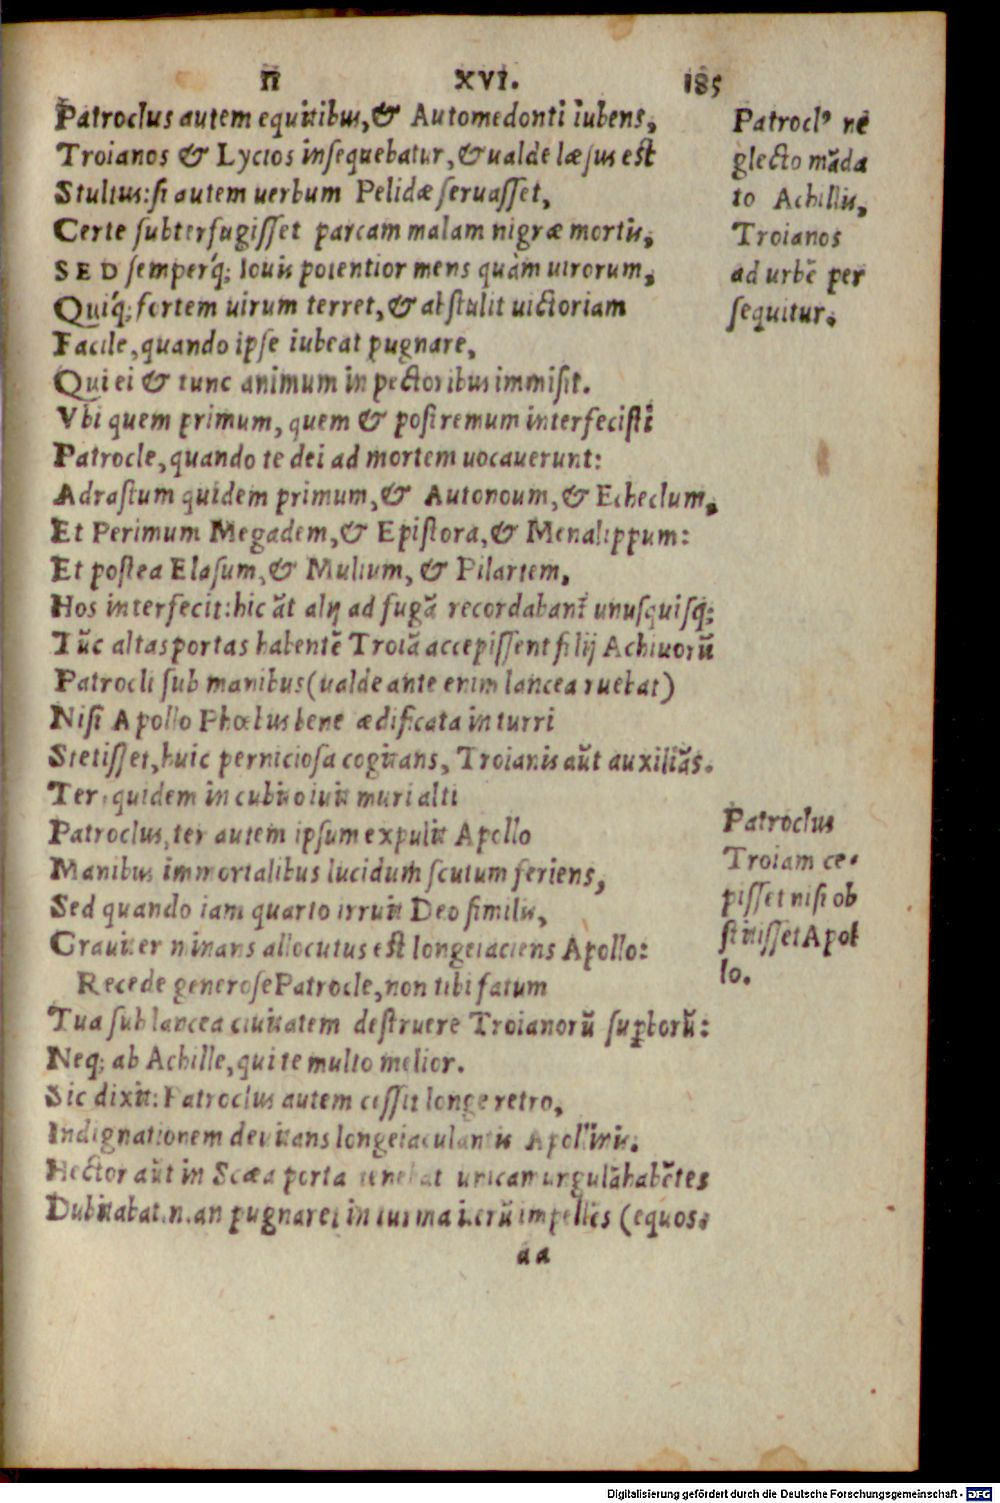 Π XVI. 185
Patroclus autem equitibus, & Automedonti iubens,
Troianos & Lycios insequebatur, & ualde læsus est
Stultus: si autem uerbum Pelidæ seruasset,
Certe subterfugisset parcam malam nigræ mortis,
SED semperq́; Iouis potentior mens quàm uirorum,
Quiq́; fortem uirum terret, & abstulit uictoriam
Facile, quando ipse iubeat pugnare,
Qui ei & tunc animum in pectoribus immisit.
Vbi quem primum, quem & postremum interfecisti
Patrocle, quando te dei ad mortem uocauerunt:
Adrastum quidem primum, & Autonoum, & Echeclum,
Et Perimum Megadem, & Epistora, & Menalippum:
Et postea Elasum, & Mulium, & Pilartem,
Hos interfecit: hic āt alij ad fugā recordabant̄ unusquisq́;
Tūc altas portas habentē Troiā accepissent filij Achiuorū
Patrocli sub manibus (ualde ante enim lancea ruebat)
Nisi Apollo Phœbus bene ædificata in turri
Stetisset, huic perniciosa cogitans, Troianis aūt auxiliās.
Ter quidem in cubito iuit muri alti
Patroclus, ter autem ipsum expulit Apollo
Manibus immortalibus lucidum scutum feriens,
Sed quando iam quarto irruit Deo similis,
Grauiter minans allocutus est longeiaciens Apollo:
Recede generose Patrocle, non tibi fatum
Tua sub lancea ciuitatem destruere Troianorū suꝑborū:
Neq; ab Achille, qui te multo melior.
Sic dixit: Patroclus autem cessit longe retro,
Indignationem deuitans longeiaculantis Apollinis.
Hector aūt in Scæa porta tenebat unicam ungulā habētes
Dubitabat.n.an pugnaret in turma iterū impellēs (equos.
aa
Patrocl⁹ ne
glecto mā́da
to Achillis,
Troianos
ad urbē per
sequitur.
Patroclus
Troiam ce-
pisset nisi ob
stitisset Apol
lo.
Digitalisierung gefördert durch die Deutsche Forschungsgemeinschaft - DFG